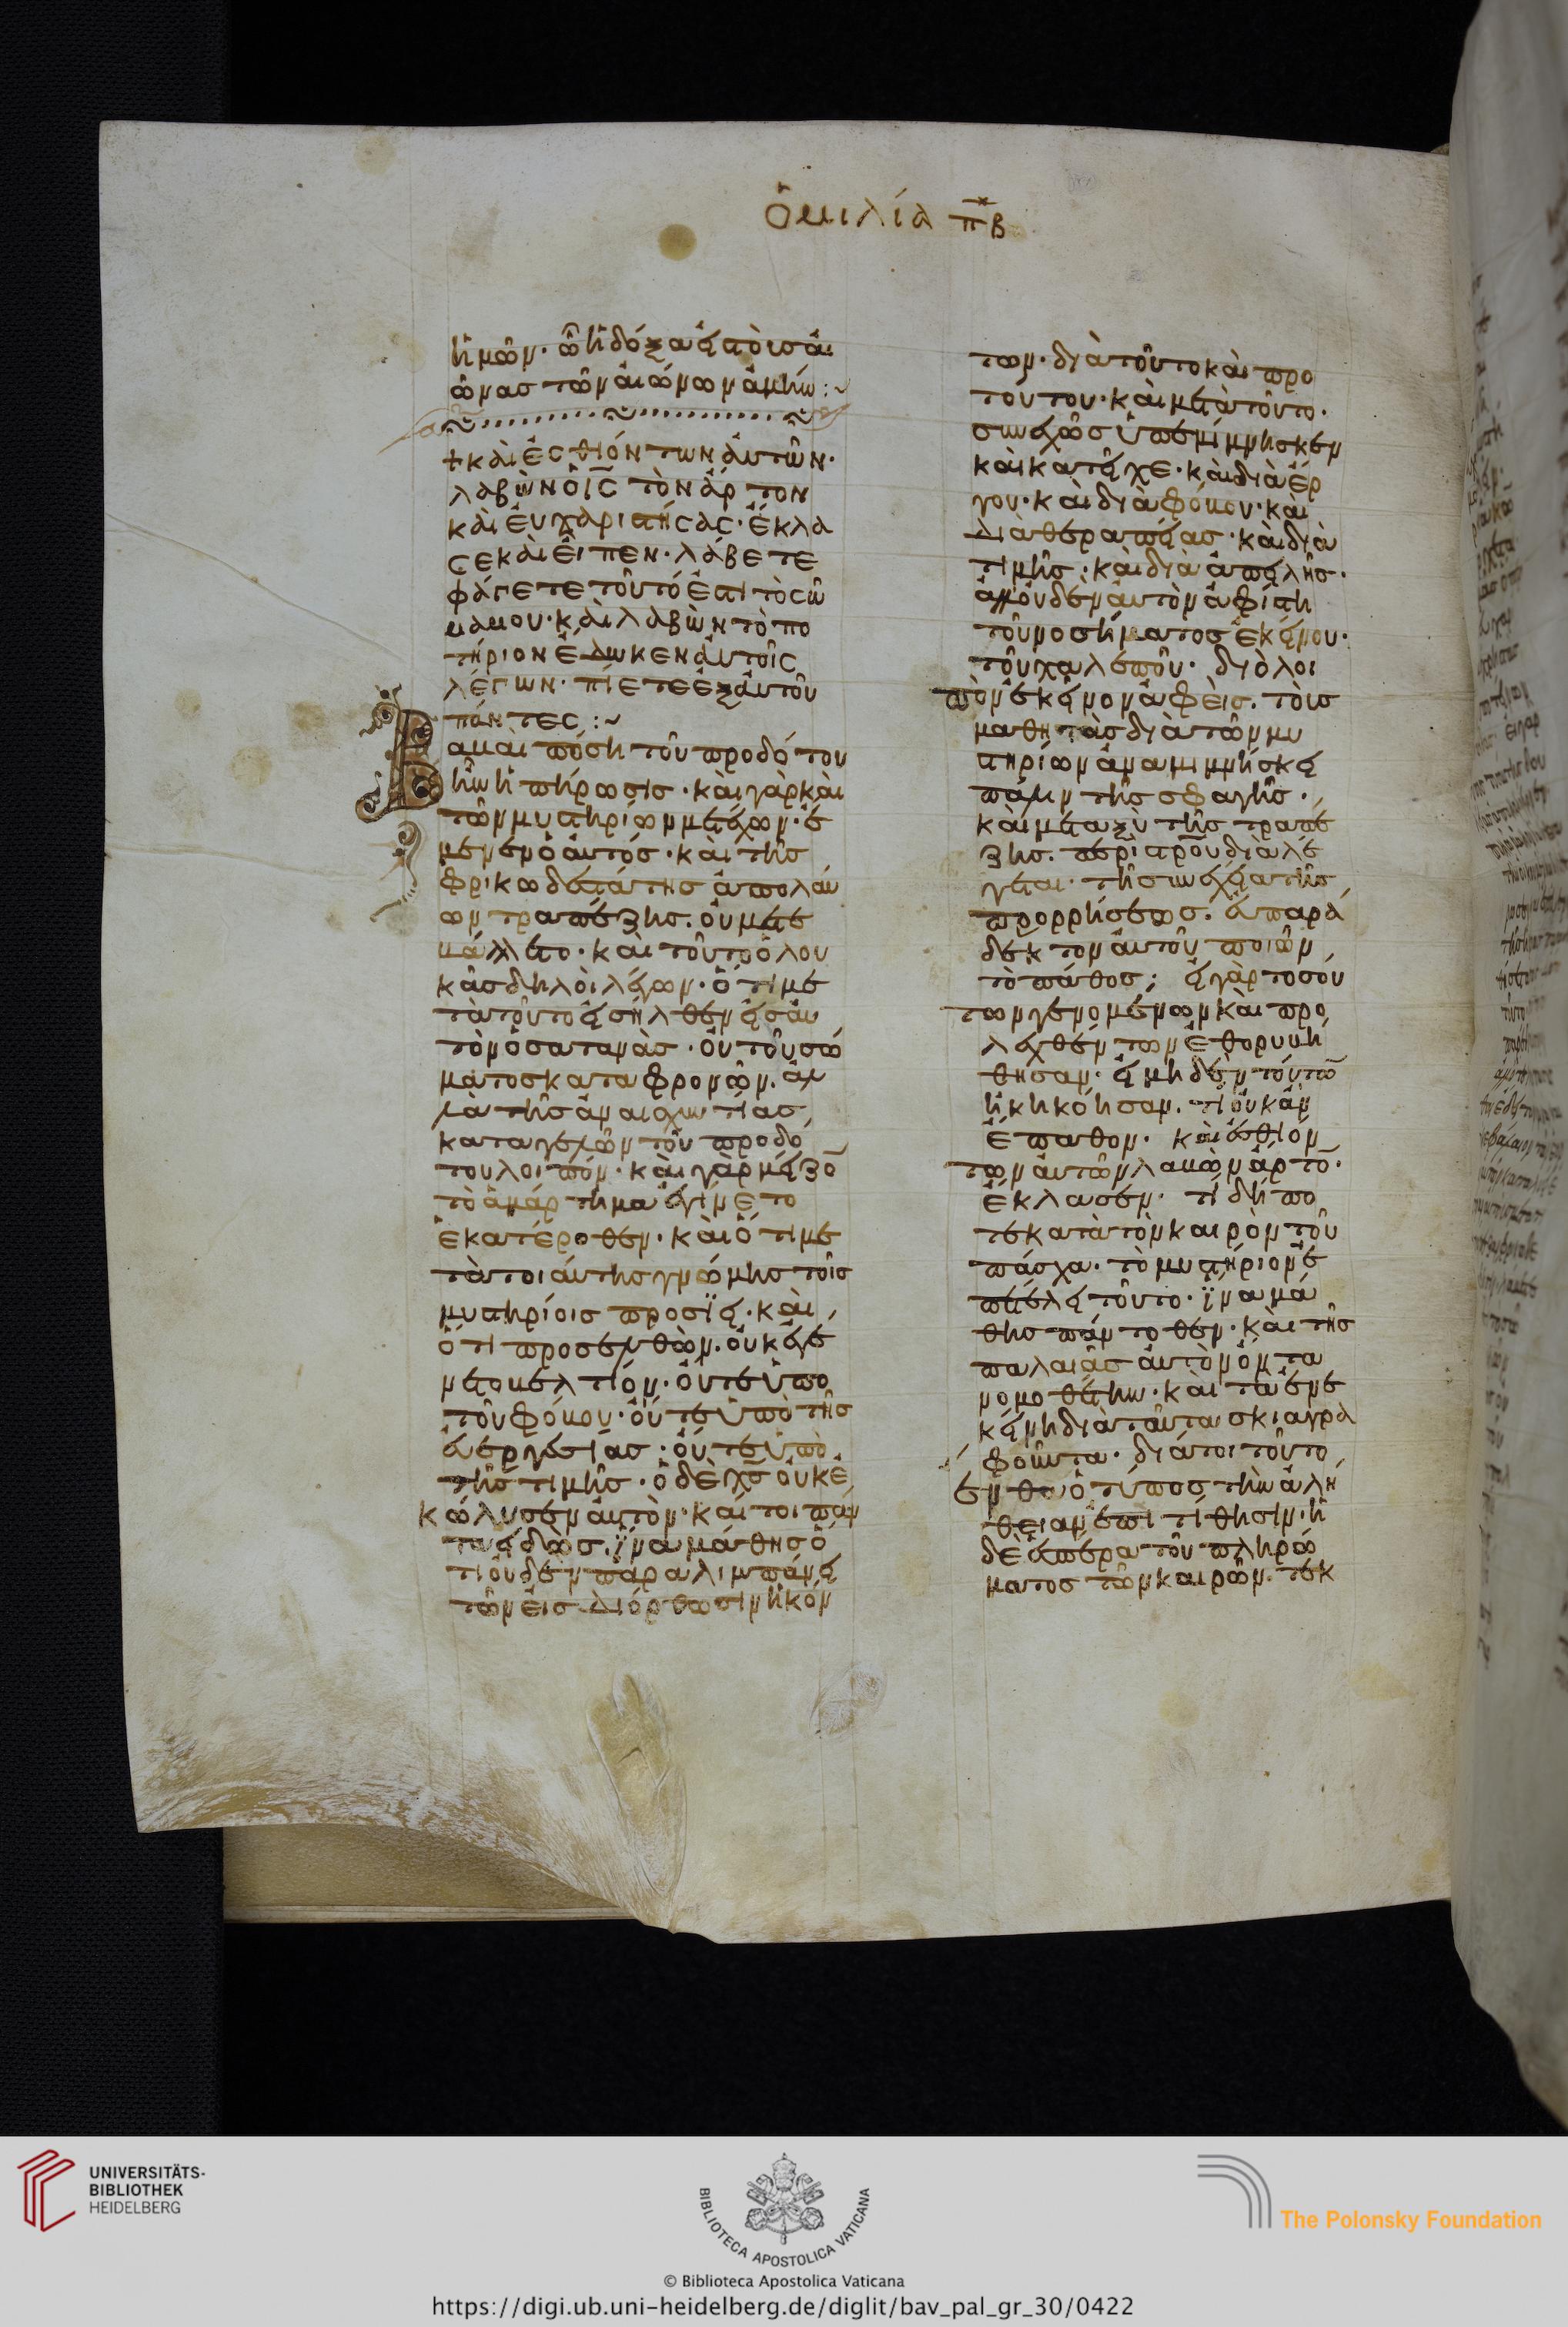 ὁμιλία π̅β
ἡμῶν· ὧ ἡ δόξα εἰς τοὺς αἰ
ῶνας τῶν αἰώνων ἀμήν :~
+ καὶ ἐσθιόντων αὐτῶν·
λαβὼν ὁ ι̅ς τὸν ἄρτον
καὶ εὐχαριστήσας· ἔκλα
σε καὶ εἶπεν· λάβετε
φάγετε τοῦτό ἐστι τὸ σῶ
μα μου· καὶ λαβὼν τὸ πο
τήριον ἔδωκεν αὐτοῖς
λέγων· πίετε ἐξ αὐτοῦ
πάντες :~
Βαβαὶ πόση τοῦ προδότου
ἦν ἡ πήρωσις· καὶ γὰρ καὶ
τῶν μυστηρίων μετέχων· ἔ
μενεν ὁ αὐτός· καὶ τῆς
φρικωδεστάτης ἀπολαύ
ων τραπέζης. οὐ μετε
βάλλετο· καὶ τοῦτο ὁ λου
κᾶς δηλοῖ λέγων· ὅτι με
τὰ τοῦτο εἰσῆλθεν εἰς αὐ
τὸν ὁ σατανᾶς· οὐ τοῦ σώ
ματος καταφρονῶν. ἀλ
λὰ τῆς ἀναισχυντίας
καταγελῶν τοῦ προδό
του λοιπόν· καὶ γὰρ μεῖζο̅
τὸ ἁμάρτημα ἐγίνετο
ἑκατέρωθεν· καὶ ὅτι με
τὰ τοιαύτης γνώμης τοῖς
μυστηρίοις προσῄει· καὶ
ὅτι προσελθὼν. οὐκ ἐγέ
νετο βελτίων· οὔτε ὑπὸ
τοῦ φόβου· οὔτε ὑπὸ τῆς
εὐεργεσίας· οὔτε ὑπὸ
τῆς τιμῆς· ὁ δὲ χ̅ς οὐκ ἐ
κώλυσεν αὐτὸν· καίτοι πάν
τα εἰδὼς. ἵνα μάθῃς ὅ
τι οὐδὲν παραλιμπάνει
τῶν εἰς διόρθωσιν ἡκόν
των· διὰ τοῦτο καὶ πρὸ
τούτου· καὶ μετὰ τοῦτο·
συνεχῶς ὑπεμίμνησκεν
καὶ κατεῖχε· καὶ διὰ ἔρ
γου· καὶ διὰ φόβου· καὶ
διὰ θεραπείας· καὶ διὰ
τιμῆς· καὶ διὰ ἀπειλῆς·
ἀλλ' οὐδὲν αὐτὸν ἀφίστη
τοῦ νοσήματος ἐκείνου·
τοῦ χαλεποῦ· διὸ λοι
πὸν ἐκεῖνον ἀφεὶς. τοὺς
μαθητὰς διὰ τῶν μυ
στηρίων ἀναμιμνήσκει
πάλιν τῆς σφαγῆς·
καὶ μεταξὺ τῆς τραπέ
ζης. περὶ στ̅ρου διαλέ
γεται· τῇ συνεχείᾳ τῆς
προρρήσεως. εὐπαρά
δεκτον αὐτοῦ ποιῶν
τὸ πάθος; εἰ γὰρ τοσού
των γενομένων καὶ προ
λεχθέντων ἐθορυβή
θησαν· εἰ μηδὲν τούτω̅
ἠκηκόησαν. τί οὐκ ἂν
ἔπαθον· καὶ ἐσθιόν
των αὐτῶν λαβὼν ἄρτο̅·
ἔκλασεν· τί δήπο
τε κατὰ τὸν καιρὸν τοῦ
πάσχα· τὸ μυστήριον ἐ
πετέλει τοῦτο· ἵνα μά
θῃς πάντοθεν· καὶ τῆς
παλαιᾶς αὐτὸν ὄντα
νομοθέτην· καὶ τὰ ἐν ἐ
κείνῃ διὰ ταῦτα σκιαγρα
φοῦντα· διά τοι τοῦτο
ἔνθα ὁ τύπος τὴν ἀλή
θειαν ἐπιτίθησιν· ἡ
δὲ ἑσπέρα τοῦ πληρώ
ματος τῶν καιρῶν· τεκ
UNIVERSITÄTS-
BIBLIOTHEK
HEIDELBERG
BIBLIOTECA APOSTOLICA VATICANA
The Polonsky Foundation
© Biblioteca Apostolica Vaticana
https://digi.ub.uni-heidelberg.de/diglit/bav_pal_gr_30/0422